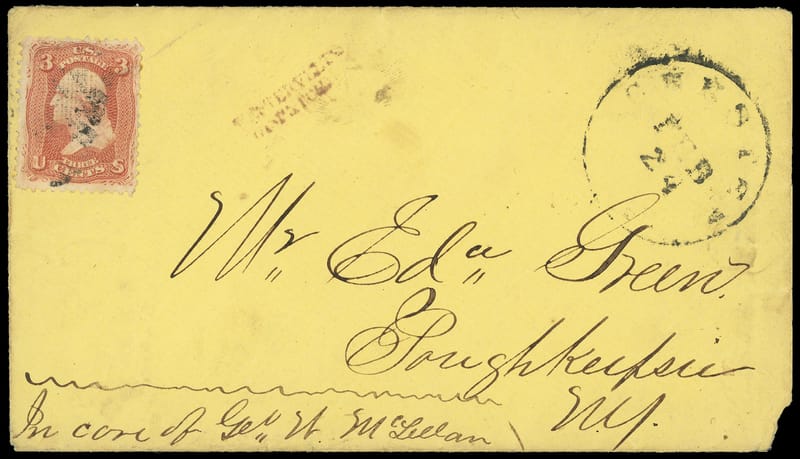 3 U.S. 3
POSTAGE
U THREE S
CENTS
FEB
24
Mr,, Ed,, Green.
Poughkeepsie
N.Y.
In care of Geo W. McLellan